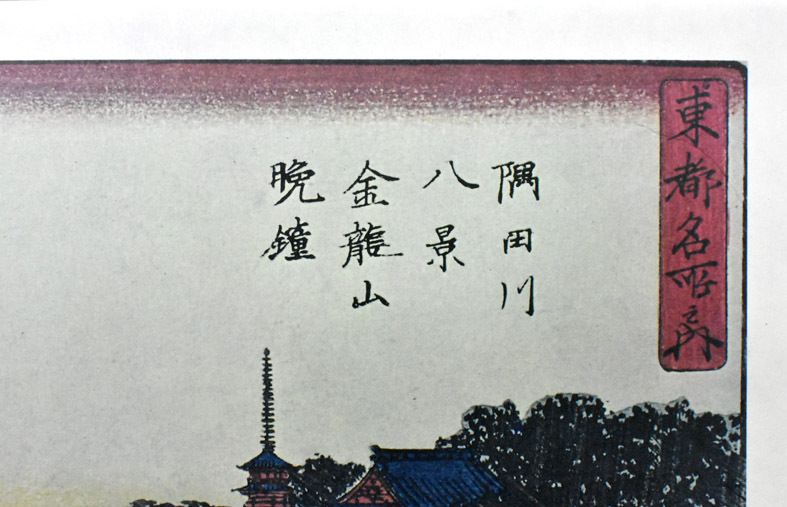 東都名所之内
隅田川
八景
金龍山
晩鐘